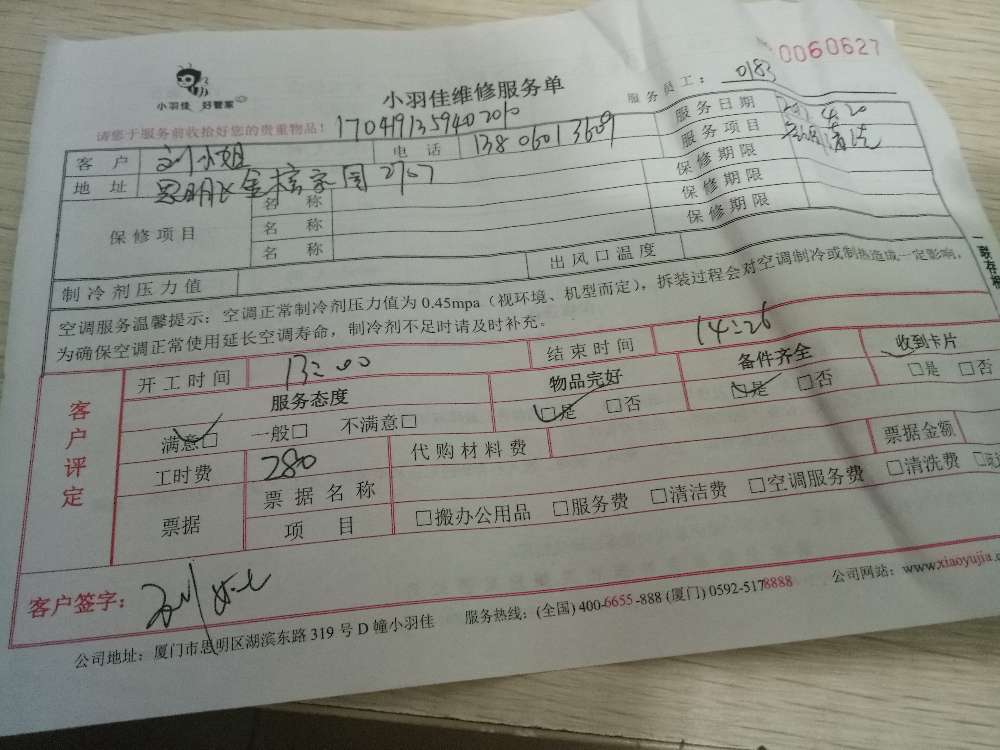 0060627
小羽佳 好管家
小羽佳维修服务单
服务员工：0183
请您于服务前收拾好您的贵重物品！
客户 刘小姐 电话 13806013609 服务日期 4.20
地址 思明区金榜家园2707 服务项目 清洗
保修项目 名称 保修期限
名称 保修期限
名称 保修期限
制冷剂压力值 出风口温度
空调服务温馨提示：空调正常制冷剂压力值为 0.45mpa（视环境、机型而定），拆装过程会对空调制冷或制热造成一定影响，
为确保空调正常使用延长空调寿命，制冷剂不足时请及时补充。
客户评定
开工时间 13:00 结束时间 14:26
服务态度 物品完好 备件齐全 收到卡片
满意□ 一般□ 不满意□ □是 □否 □是 □否 □是 □否
工时费 280 代购材料费
票据 票据名称 票据金额
项目 □搬办公用品 □服务费 □清洁费 □空调服务费 □清洗费
客户签字：
公司地址：厦门市思明区湖滨东路 319 号 D 幢小羽佳 服务热线：(全国) 400-6655-888 (厦门) 0592-5178888 公司网站：www.xiaoyujia.c